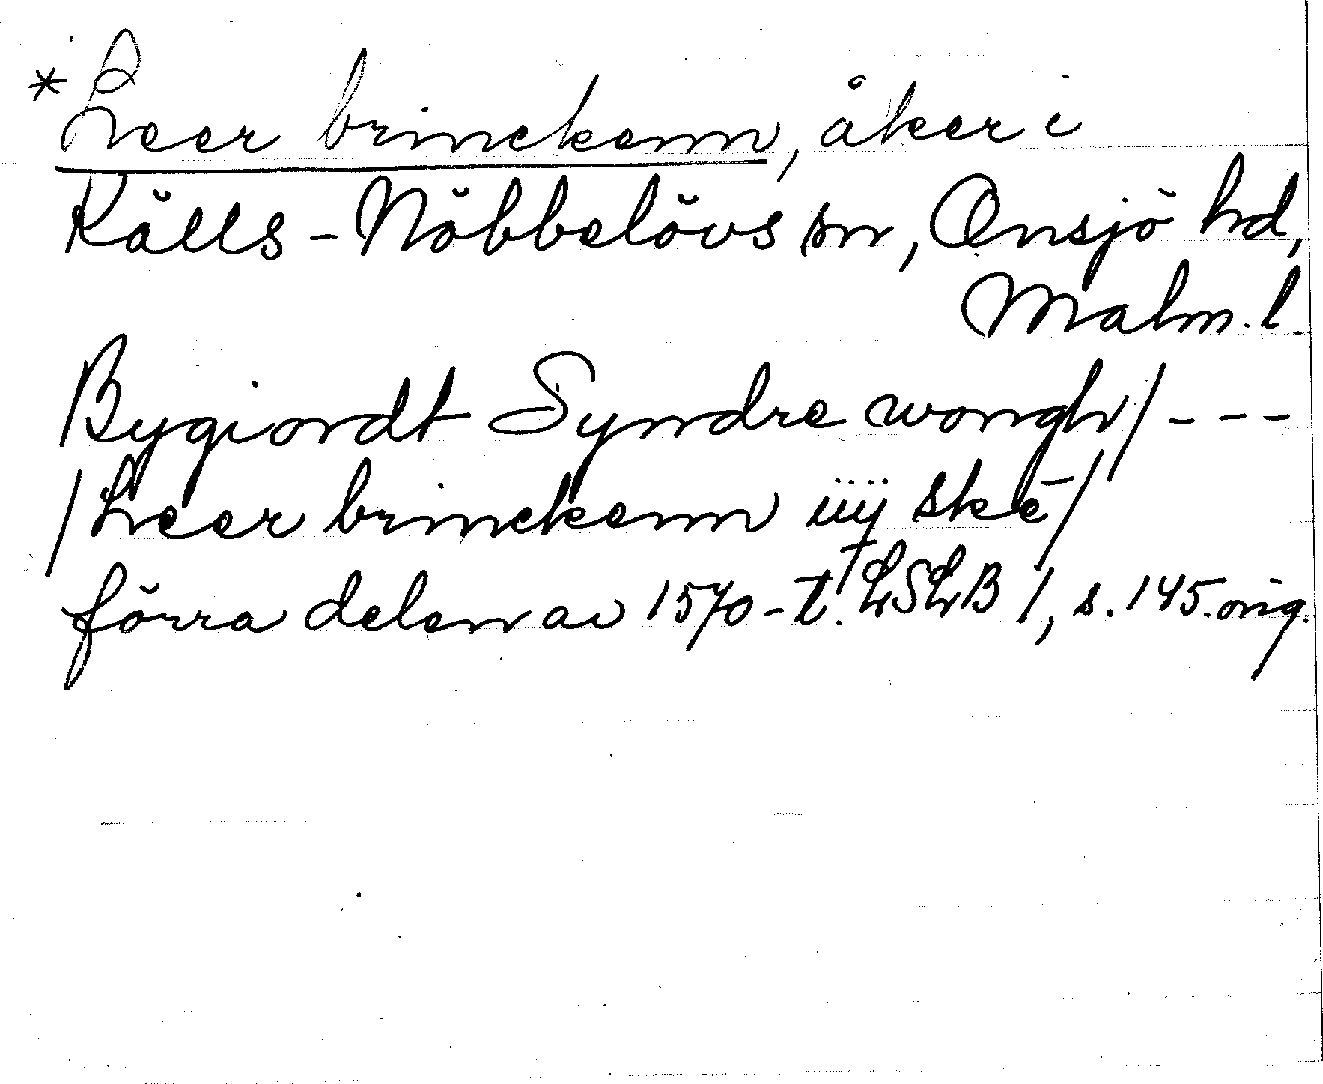 *Leer brinckenn, åker i
Källs-Nöbbelövs sn, Onsjö hd,
Malm.l.
Bygiordt Syndre wongh/---
/Leer brinckenn iiij skē/
förra delen av 1570-t. LSLB 1, s. 145.orig.